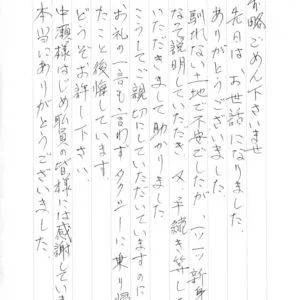 前略ごめん下さいませ
先日は、お世話になりました。
ありがとうございました
馴れない土地で不安でしたが、一ッ一ッ新身
なって説明していただき、又手続き等し
いただきまして助かりました。
こうしてご親切にしていただいていますのに
お礼の一言も言わずタクシーに乗り帰
たこと後悔しています
どうぞお許し下さい。
中瀬様はじめ職員の皆様には感謝していま
本当にありがとうございました